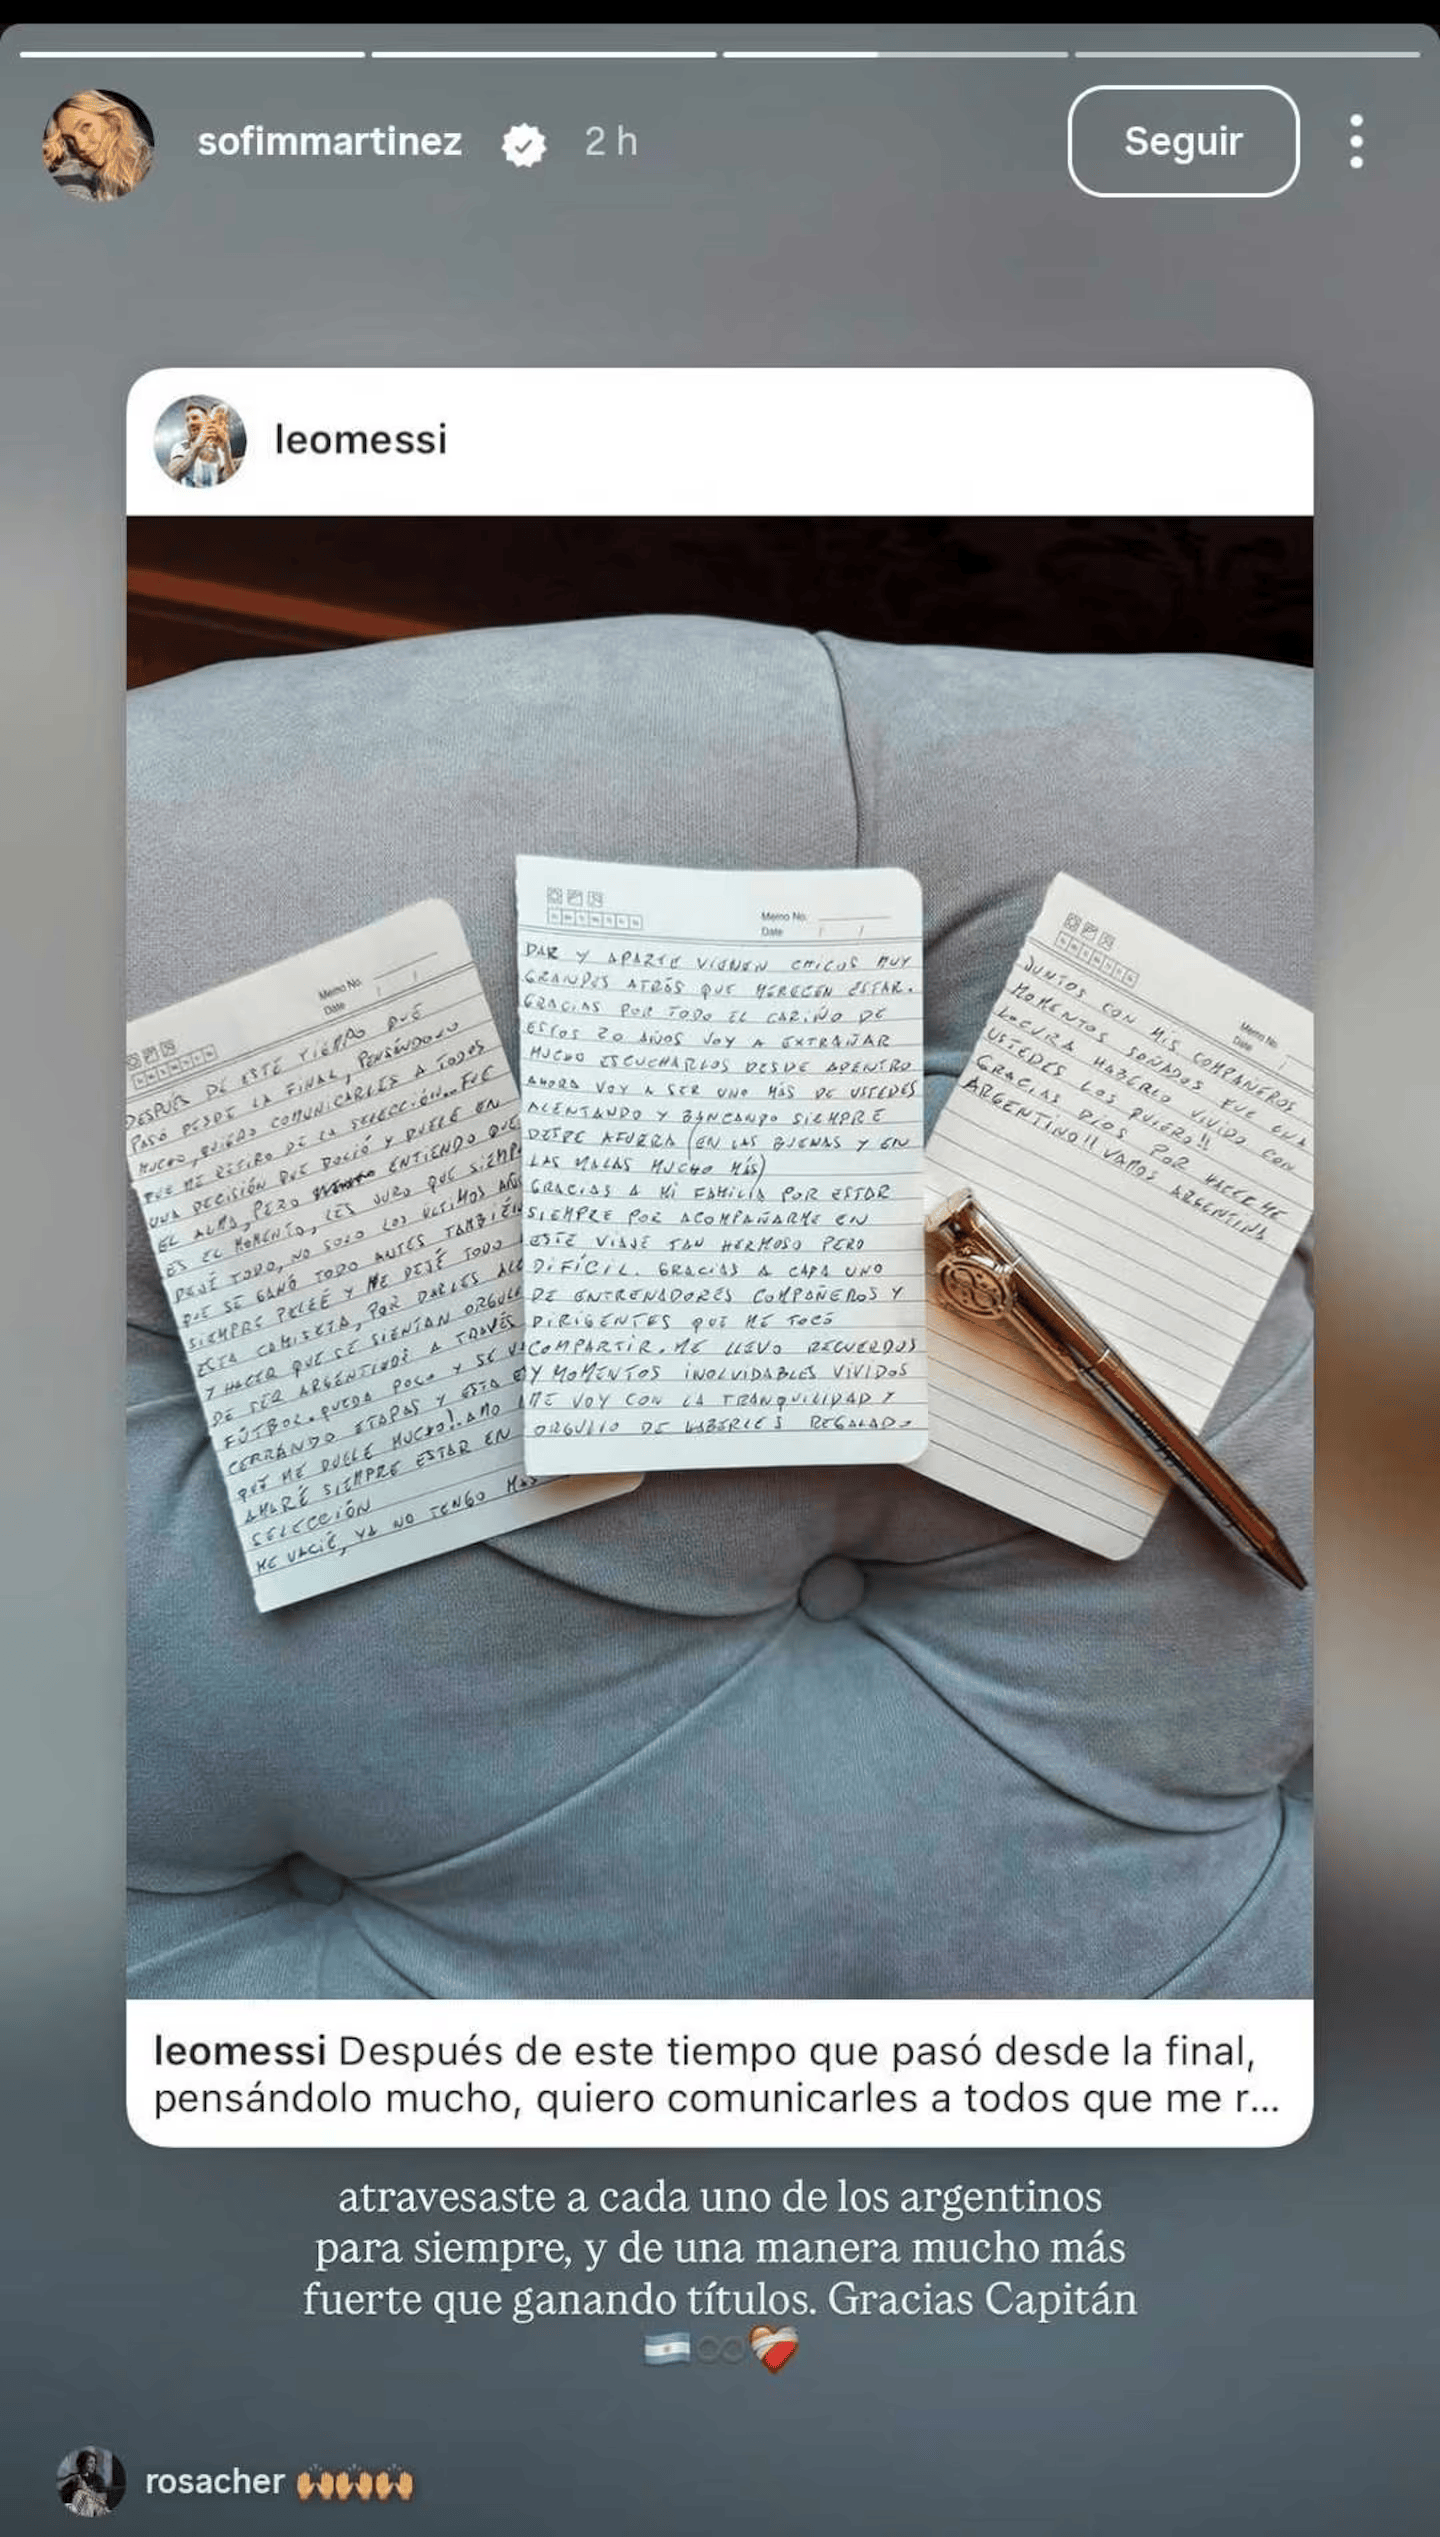 sofimmartinez
2 h
Seguir
leomessi
Memo No.
Date
DESPUES DE ESTE TIEMPO QUE
PASÓ DESDE LA FINAL, PENSÁNDOLO
MUCHO, QUIERO COMUNICARLES A TODOS
QUE ME RETIRO DE LA SELECCIÓN... FUE
UNA DECISIÓN QUE DOLIÓ Y DUELE EN
EL ALMA, PERO ENTIENDO QUE
ES EL MOMENTO, LES JURO QUE SIEMP
DEJÉ TODO, NO SOLO LOS ULTIMOS AÑ
QUE SE GANÓ TODO ANTES TAMBIÉN
SIEMPRE PELEÉ Y ME DEJÉ TODO
ESTA CAMISETA, POR DARLES ALE
Y HACER QUE SE SIENTAN ORGULL
DE SER ARGENTINOS A TRAVÉS
FÚTBOL. QUEDA POCO Y SE V
CERRANDO ETAPAS Y ESTA E
QUE ME DUELE MUCHO!. AMO
AMARÉ SIEMPRE ESTAR EN
SELECCIÓN
ME VACIÉ, YA NO TENGO MAS
Memo No.
Date / /
DAR Y APARTE VIENEN CHICOS MUY
GRANDES ATRÁS QUE MERECEN ESTAR.
GRACIAS POR TODO EL CARIÑO DE
ESTOS 20 AÑOS VOY A EXTRAÑAR
MUCHO ESCUCHARLOS DESDE ADENTRO
AHORA VOY A SER UNO MÁS DE USTEDES
ALENTANDO Y BANCANDO SIEMPRE
DESDE AFUERA (EN LAS BUENAS Y EN
LAS MALAS MUCHO MÁS)
GRACIAS A MI FAMILIA POR ESTAR
SIEMPRE POR ACOMPAÑARME EN
ESTE VIAJE TAN HERMOSO PERO
DIFÍCIL. GRACIAS A CADA UNO
DE ENTRENADORES COMPAÑEROS Y
DIRIGENTES QUE ME TOCÓ
COMPARTIR. ME LLEVO RECUERDOS
Y MOMENTOS INOLVIDABLES VIVIDOS
ME VOY CON LA TRANQUILIDAD Y
ORGULLO DE HABERLES REGALADO
Memo No.
Date
JUNTOS CON MIS COMPAÑEROS
MOMENTOS SOÑADOS FUE UNA
LOCURA HABERLO VIVIDO CON
USTEDES LOS QUIERO!!
GRACIAS DIOS POR HACERME
ARGENTINO!! VAMOS ARGENTINA
leomessi Después de este tiempo que pasó desde la final,
pensándolo mucho, quiero comunicarles a todos que me r...
atravesaste a cada uno de los argentinos
para siempre, y de una manera mucho más
fuerte que ganando títulos. Gracias Capitán
🇦🇷♾️❤️‍🩹
rosacher 🙌🏽🙌🏽🙌🏽